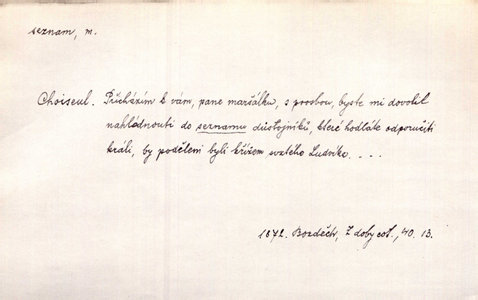 seznam, m.
Choiseul. Přicházím k vám, pane maršálku, s prosbou, byste mi dovolil
nahlédnouti do seznamu důstojníků, které hodláte odporučiti
králi, by poděleni byli křížem svatého Ludvíka. . . .
1872. Bozděch, Z doby cot., 40. 13.